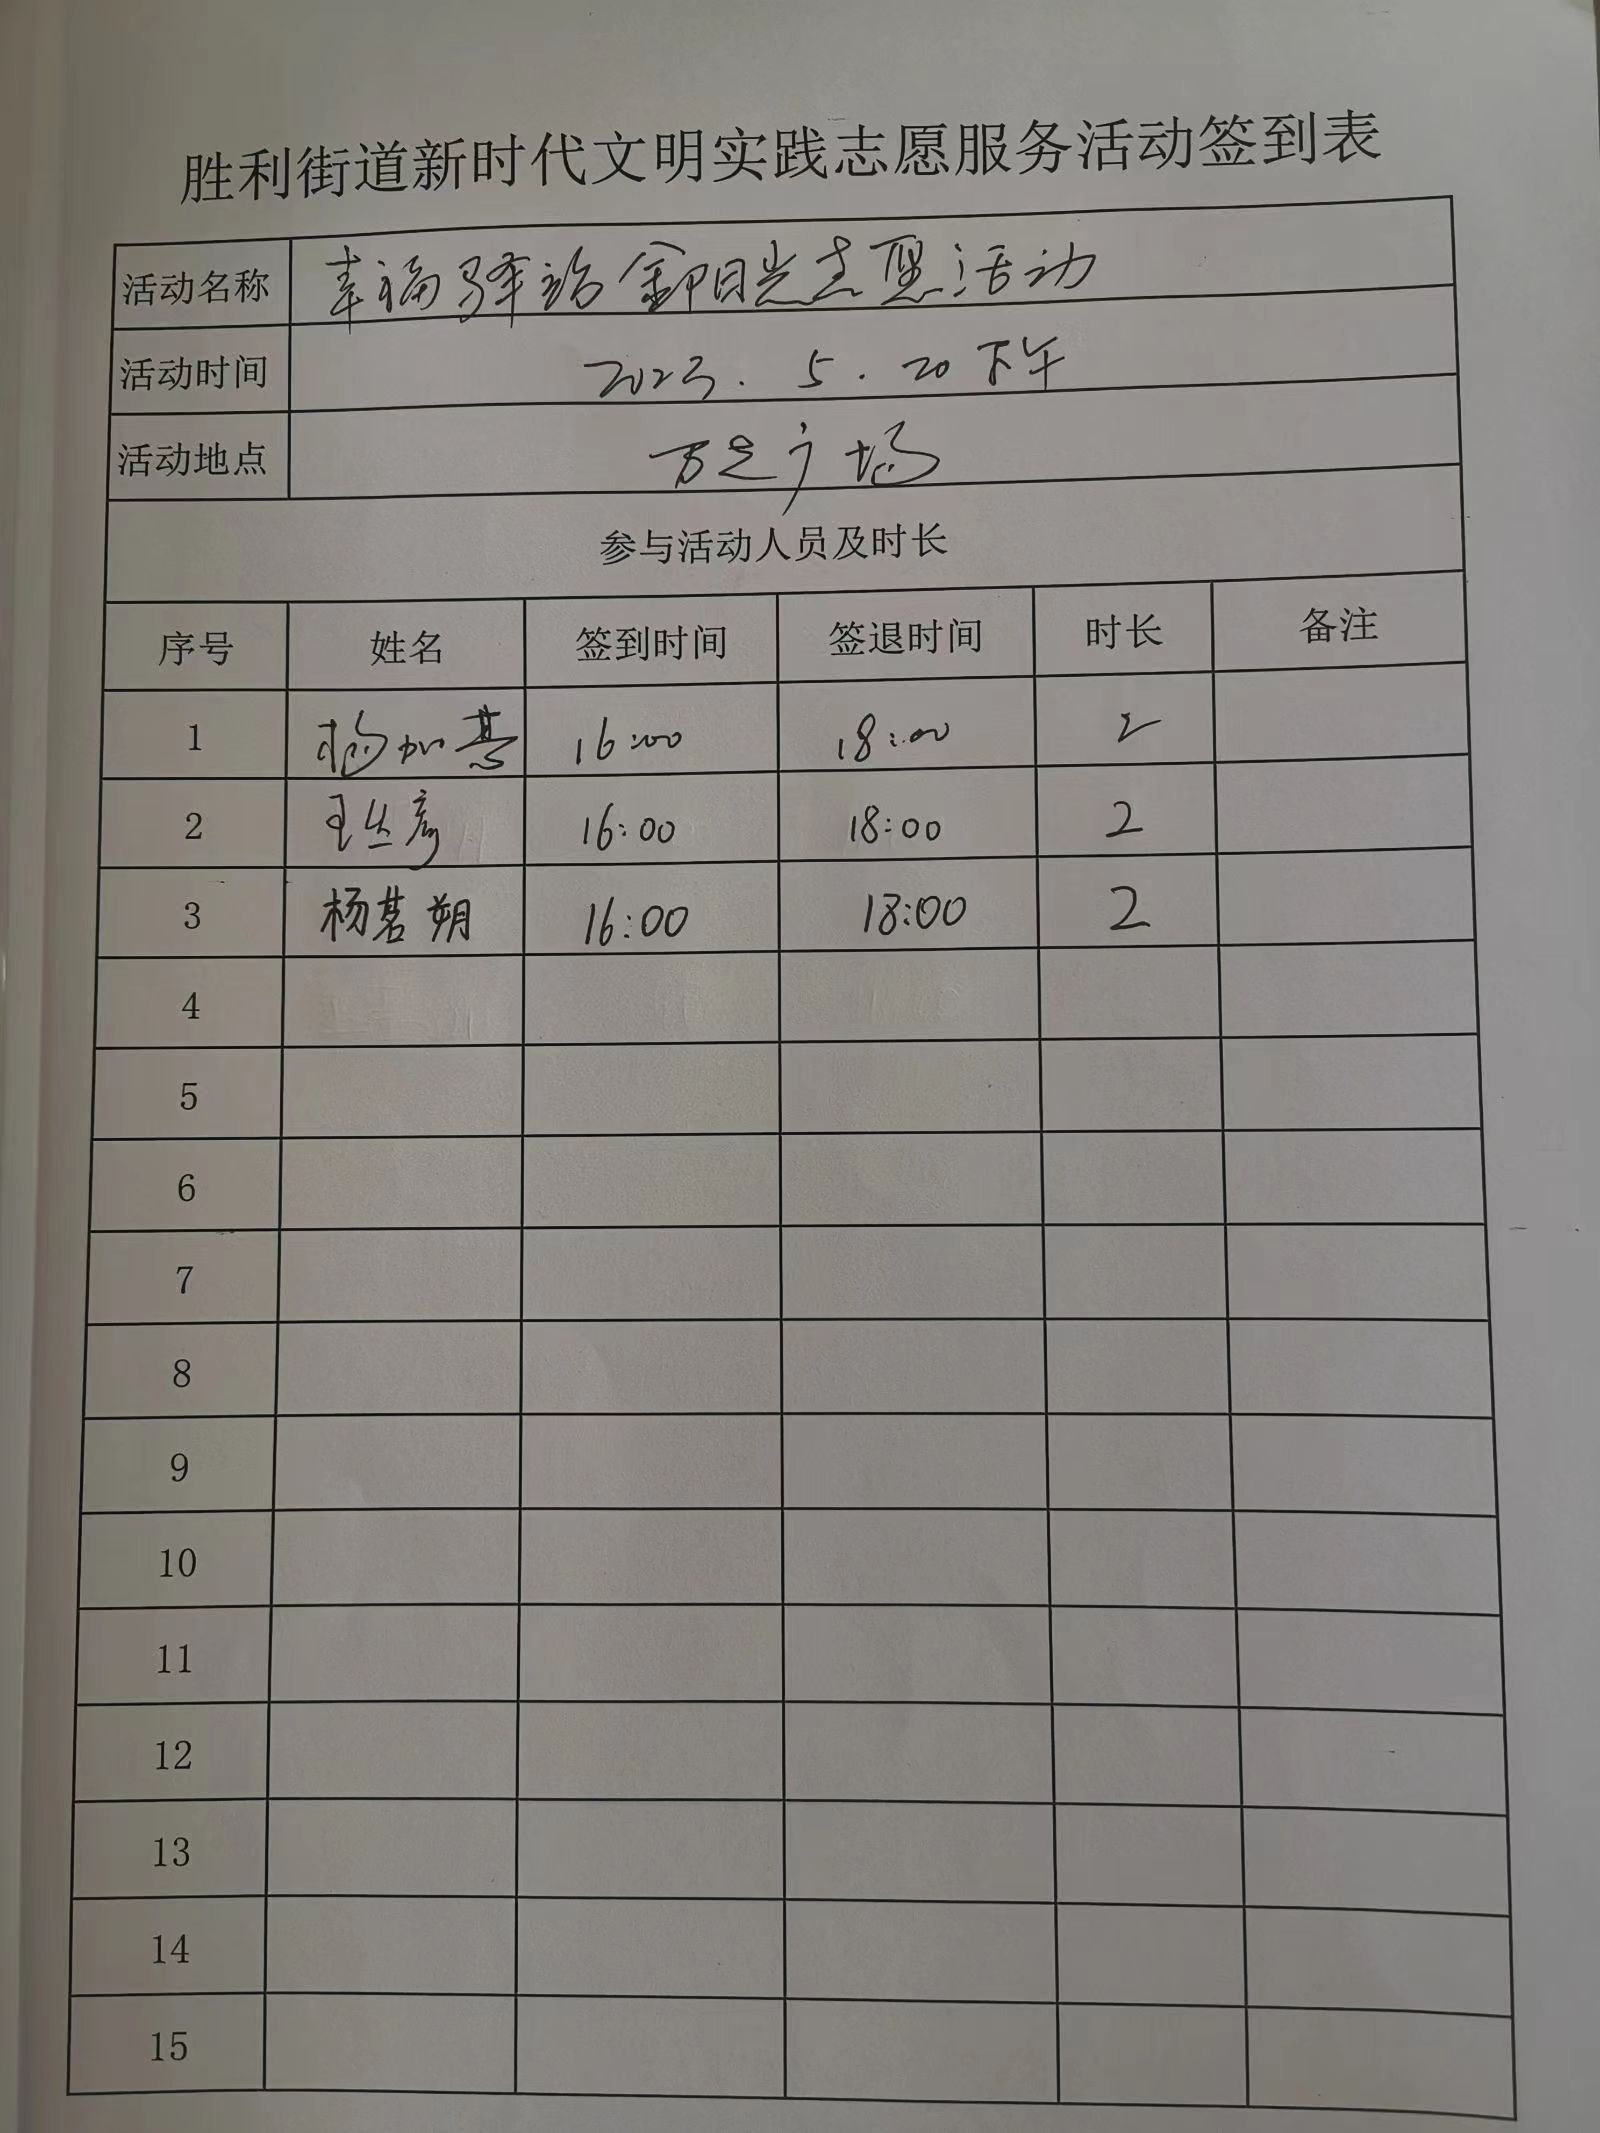 胜利街道新时代文明实践志愿服务活动签到表
活动名称 幸福驿站金阳光志愿活动
活动时间 2023. 5. 20下午
活动地点 万达广场
参与活动人员及时长
序号 姓名 签到时间 签退时间 时长 备注
1 杨加慧 16:00 18:00 2
2 王丛彦 16:00 18:00 2
3 杨茗朔 16:00 18:00 2
4
5
6
7
8
9
10
11
12
13
14
15